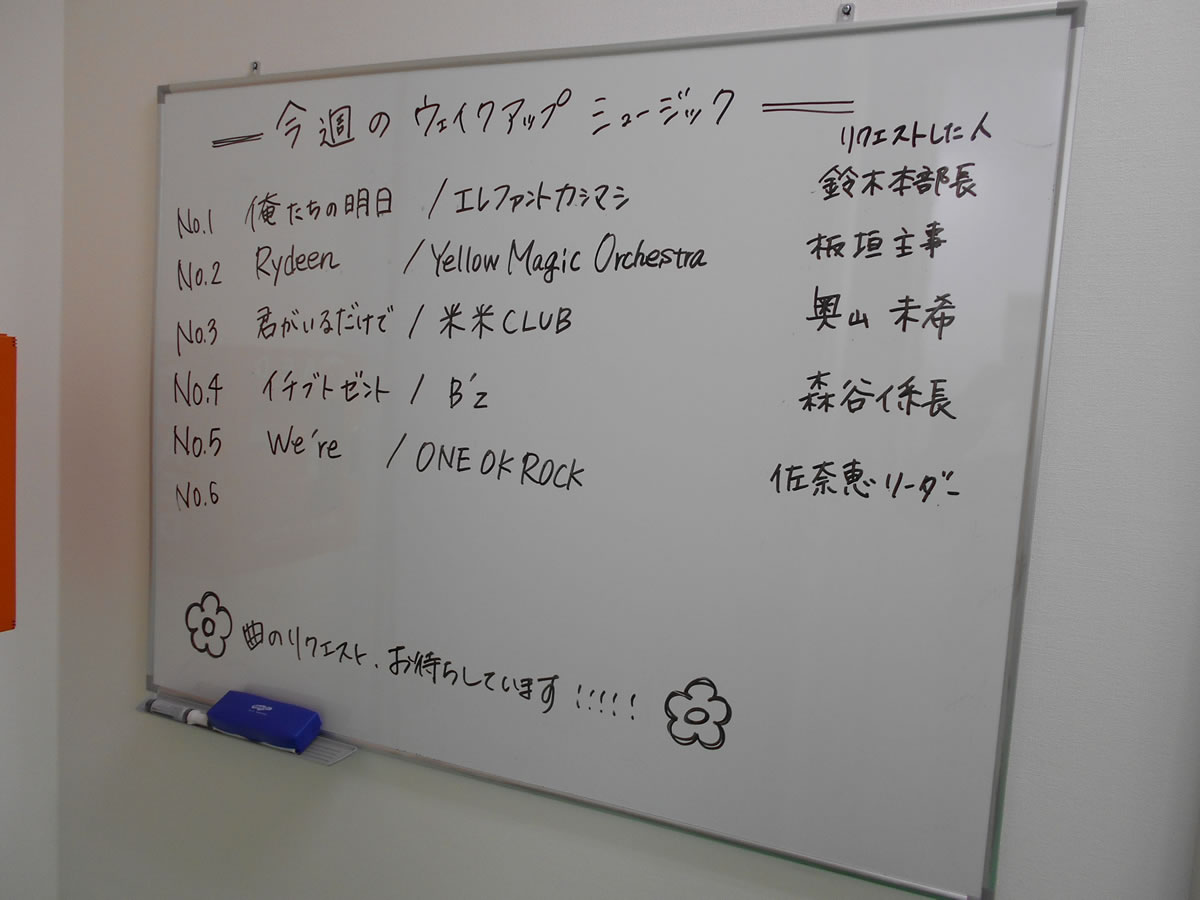 今週の ウェイクアップ ミュージック
リクエストした人
No.1 俺たちの明日 / エレファントカシマシ 鈴木本部長
No.2 Rydeen / Yellow Magic Orchestra 板垣主事
No.3 君がいるだけで / 米米CLUB 奥山 未希
No.4 イチブトゼンブ / B'z 森谷係長
No.5 We're / ONE OK ROCK 佐奈恵リーダー
No.6
曲のリクエスト、お待ちしています!!!!!